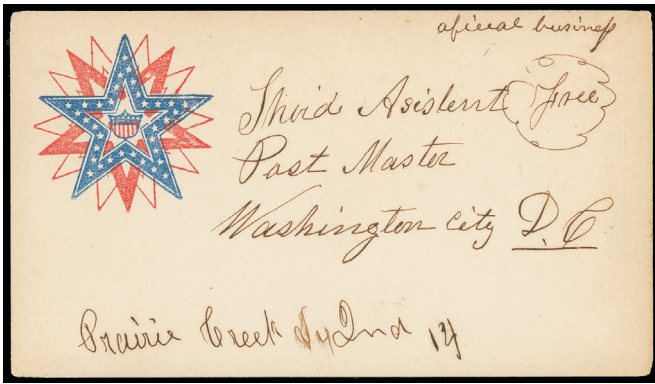 aficial business
Third Asistent Free
Post Master
Washington City D. C
Prairie Creek Ind